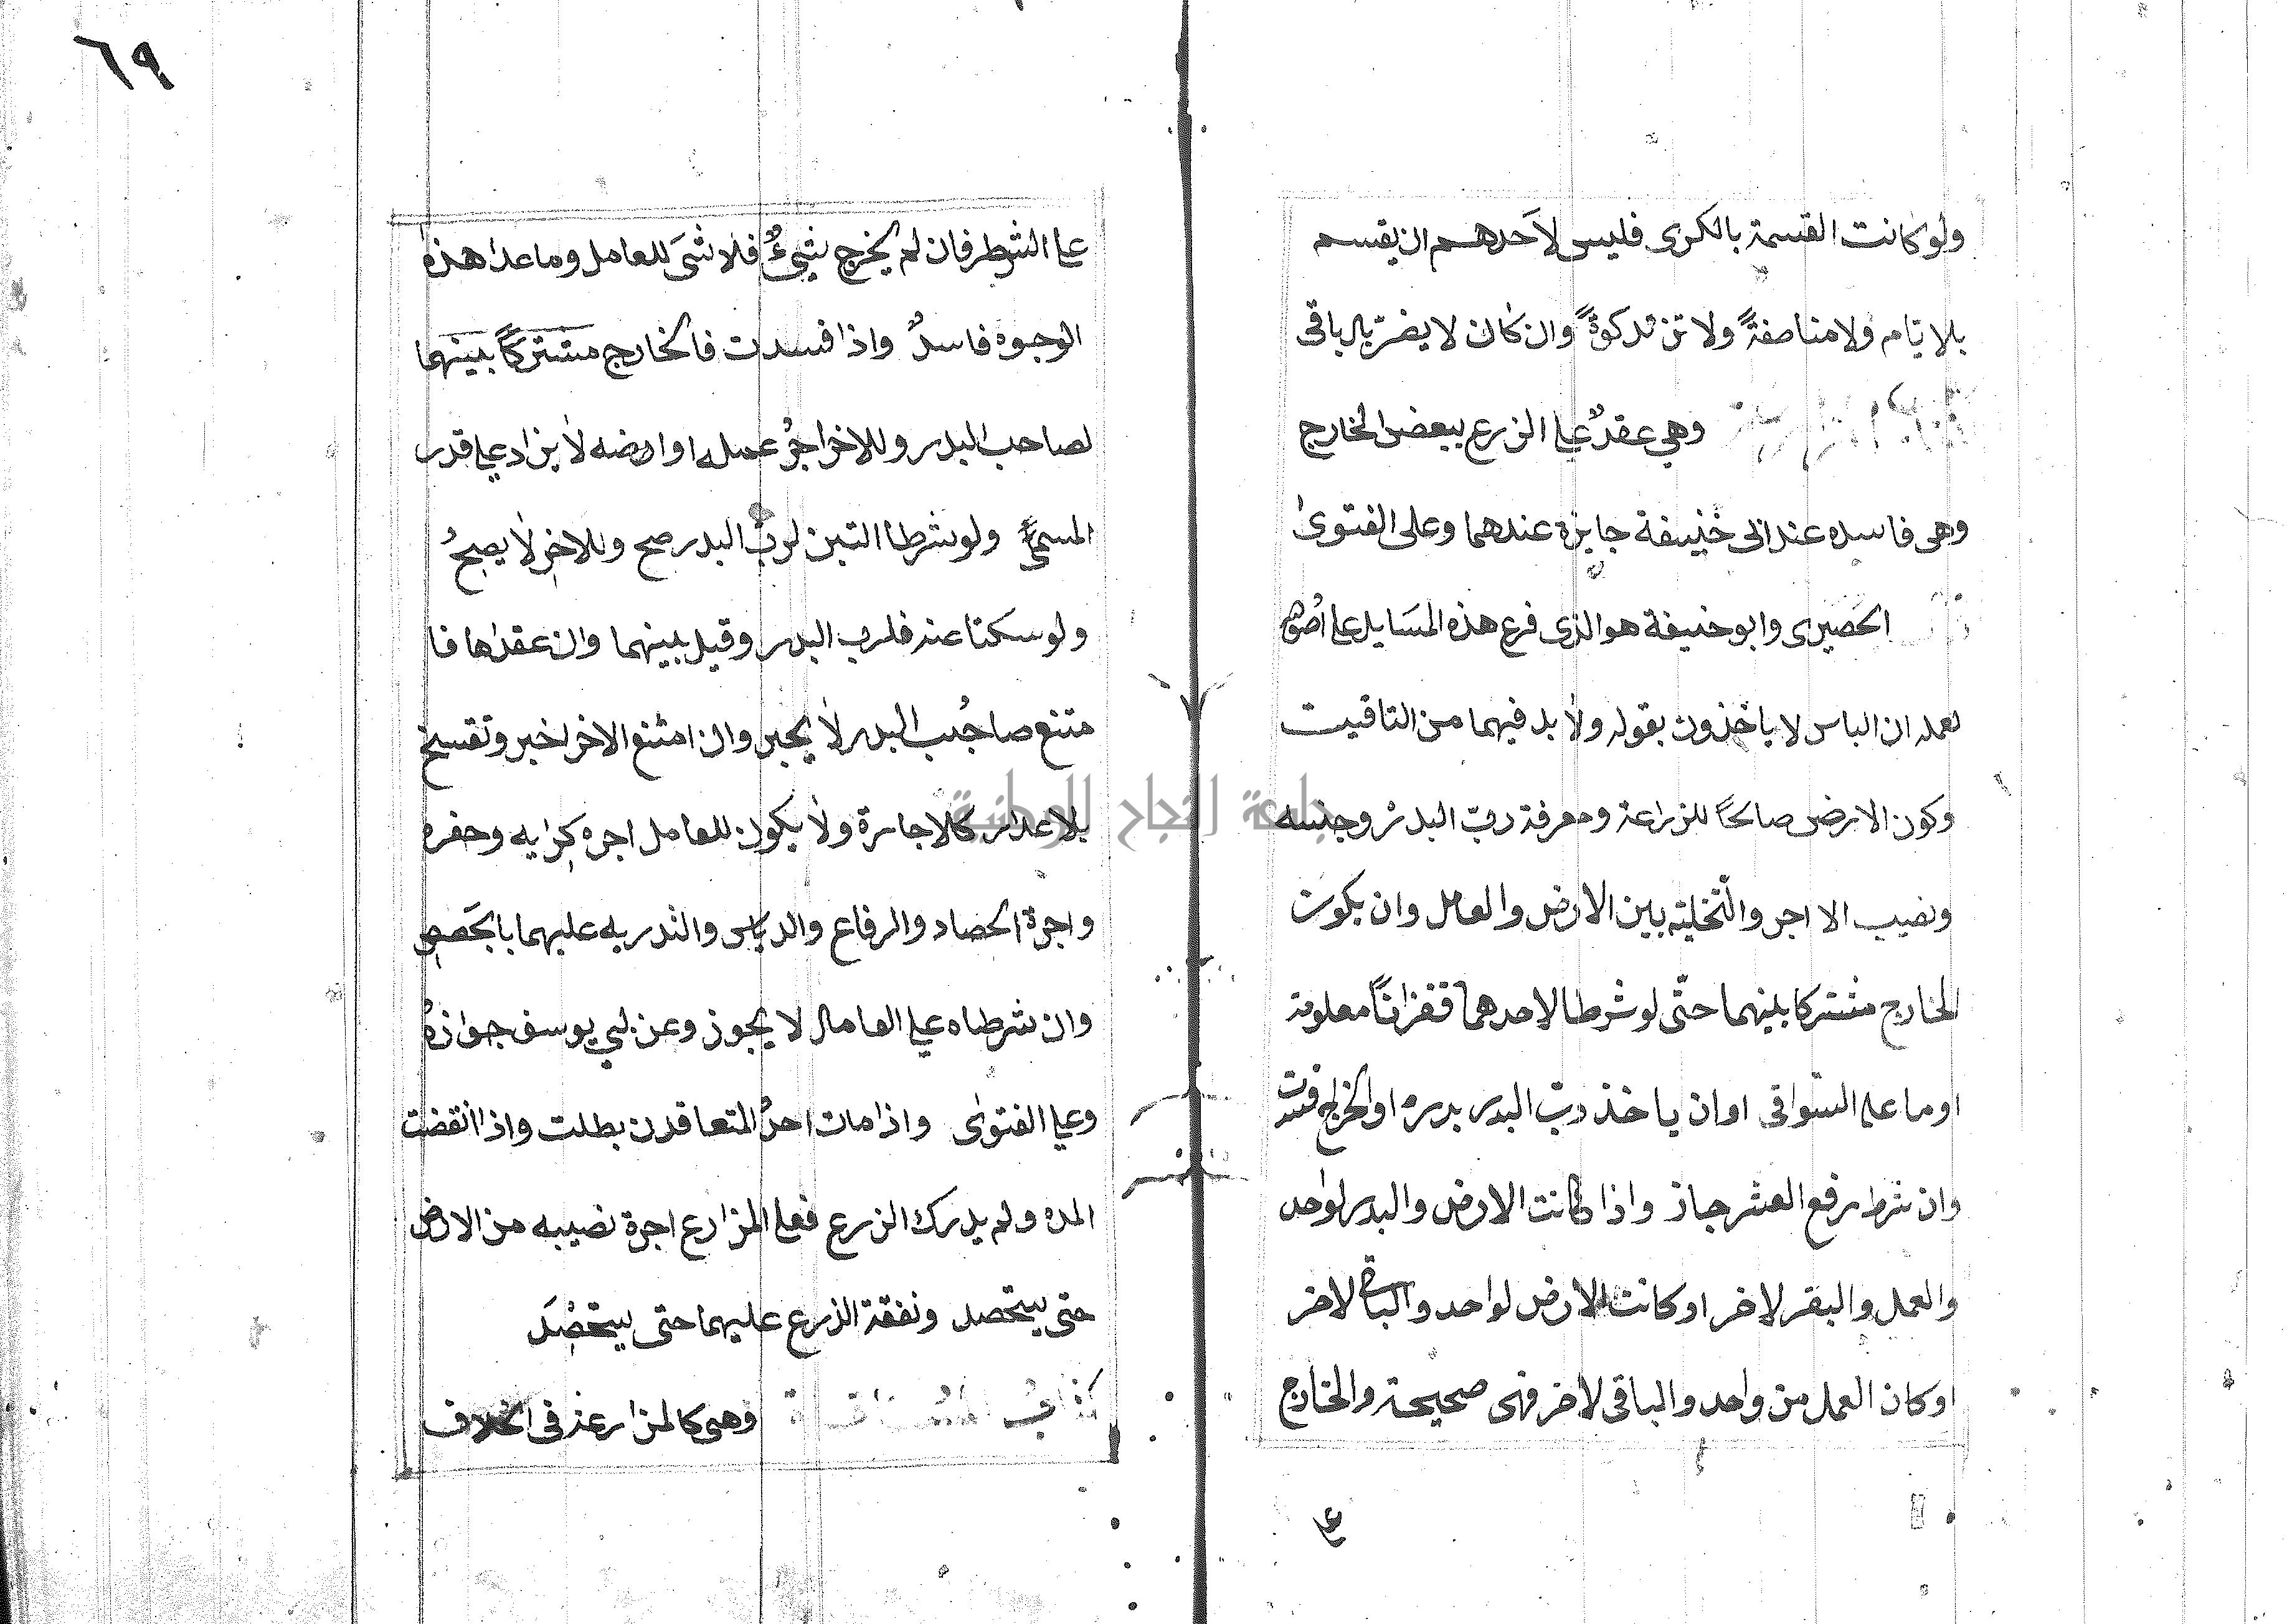 ٦٩
ولو كانت القسمة بالكرى فليس لأحدهم ان يقسم
بالايام ولا مناصفةً ولا وان كان لا يضر بالباقى
وهي عقدٌ على الزرع ببعض الخارج
وهى فاسده عند ابى حنيفة جايزة عندهما وعلى الفتوى
الحصيرى وابو حنيفة هو الذى فرع هذه المسَايل على اصوله
لعمله ان الناس لا ياخذون بقوله ولا بد فيهما من التاقيت
وكون الارض صالحًا للزراعة ومعرفة ربّ البدر وجنسه
ونصيب الاخر والتخلية بين الارض والعامل وان يكون
الخارج مشتركا بينهما حتّى لو شرطا لاحدهما قفزانًا معلومة
او ما على السّواقى اوان ياخذ ربّ البدر بدره او الخراج فسدت
وان شرط رفع العشر جاز واذا كانت الارض والبدر لواحد
والعمل والبقر لاخر او كانت الارض لواحد والباقى لاخر
او كان العمل من واحد والباقى لاخر فهى صحيحة والخارج
على
على الشرط فان لم يخرج شيءٌ فلا شىَ للعامل وما عدا هذه
الوجوه فاسدٌ واذا فسدت فالخارج مشتركًا بينهما
لصاحب البدر وللاخر اجرُ عمله او ارضه لا يزاد على قدر
المسمىً ولو شرطا التبن لربّ البدر صح وللاخر لا يصحُ
ولو سكتا عنه فلرب البدر وقيل بينهما وان عقداها فا
متنع صاحُب البدر لا يجبر وان امتنع الاخر اجبر وتفسخ
بالاعذار كالاجارة ولا يكون للعامل اجره كرايه وحفره
واجرة الحصاد والرفاع والدياس والتذريه عليهما بالحَصص
وان شرطاه على العامل لا يجوز وعن ابي يوسف جوازهُ
وعلى الفتوى واذا مات احدُ المتعاقدن بطلت واذا انقضت
المده ولم يدرك الزرع فعلى المزارع اجرة نصيبه من الارض
حتى يستحصد ونفقة الزرع عليهما حتى يستحْصَدَ
كتابُ المُسَاقاة وهى كالمزارعة فى الخلاف
جامعة النجاح الوطنية